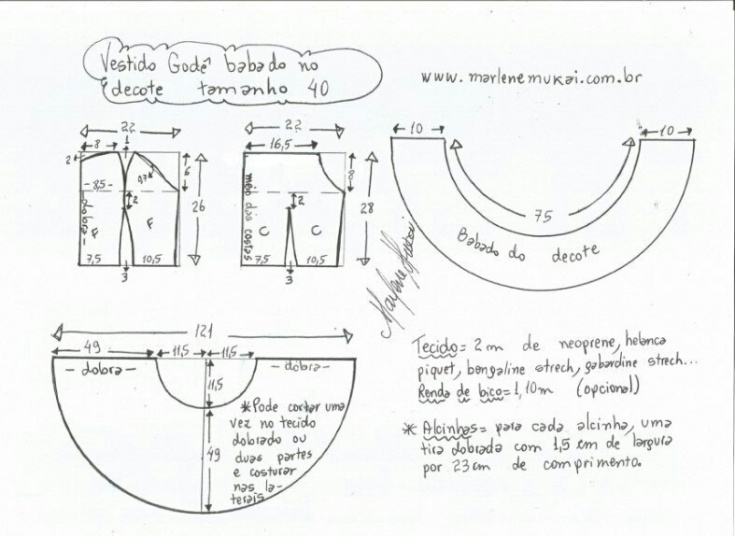 Vestido Godê babado no
decote tamanho 40
www.marlenemukai.com.br
22
8
1
2
8,5
9,7
6
26
2
dobra
F
F
7,5
10,5
3
22
16,5
8
28
meio das costas
2
C
C
7,5
10,5
3
10
10
75
Babado do decote
Marlene Mukai
121
49
11,5
11,5
- dobra -
- dobra -
11,5
49
*Pode cortar uma
vez no tecido
dobrado ou
duas partes
e costurar
nas la-
terais
Tecido= 2m de neoprene, helanca
piquet, bengaline strech, gabardine strech...
Renda de bico= 1,10m (opcional)
* Alcinhas= para cada alcinha, uma
tira dobrada com 1,5 cm de largura
por 23cm de comprimento.